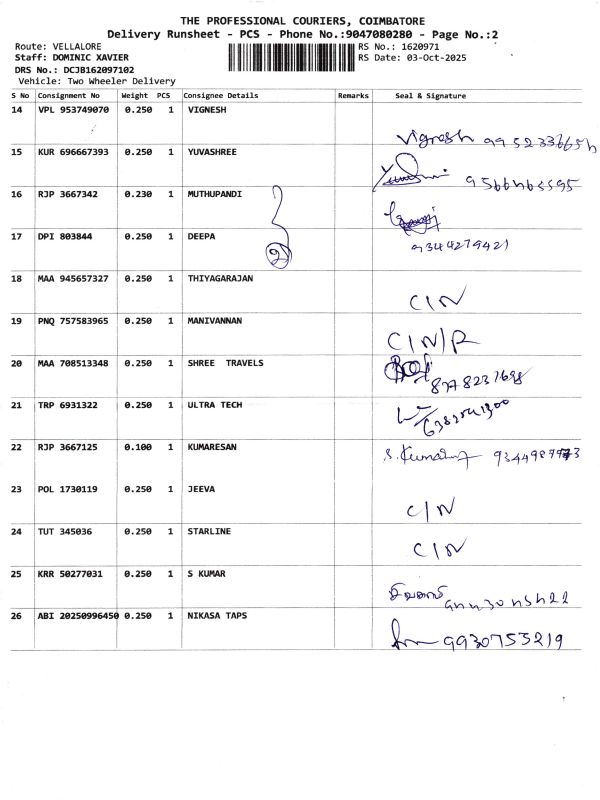 THE PROFESSIONAL COURIERS, COIMBATORE
Delivery Runsheet - PCS - Phone No.:9047080280 - Page No.:2
Route: VELLALORE RS No.: 1620971
Staff: DOMINIC XAVIER RS Date: 03-Oct-2025
DRS No.: DCJB162097102
Vehicle: Two Wheeler Delivery
S No Consignment No Weight PCS Consignee Details Remarks Seal & Signature
14 VPL 953749070 0.250 1 VIGNESH
Vignesh
15 KUR 696667393 0.250 1 YUVASHREE
16 RJP 3667342 0.230 1 MUTHUPANDI
17 DPI 803844 0.250 1 DEEPA
9344279421
18 MAA 945657327 0.250 1 THIYAGARAJAN
C/N
19 PNQ 757583965 0.250 1 MANIVANNAN
C/N/R
20 MAA 708513348 0.250 1 SHREE TRAVELS
21 TRP 6931322 0.250 1 ULTRA TECH
22 RJP 3667125 0.100 1 KUMARESAN
23 POL 1730119 0.250 1 JEEVA
C/N
24 TUT 345036 0.250 1 STARLINE
C/N
25 KRR 50277031 0.250 1 S KUMAR
26 ABI 20250996450 0.250 1 NIKASA TAPS
9930755219